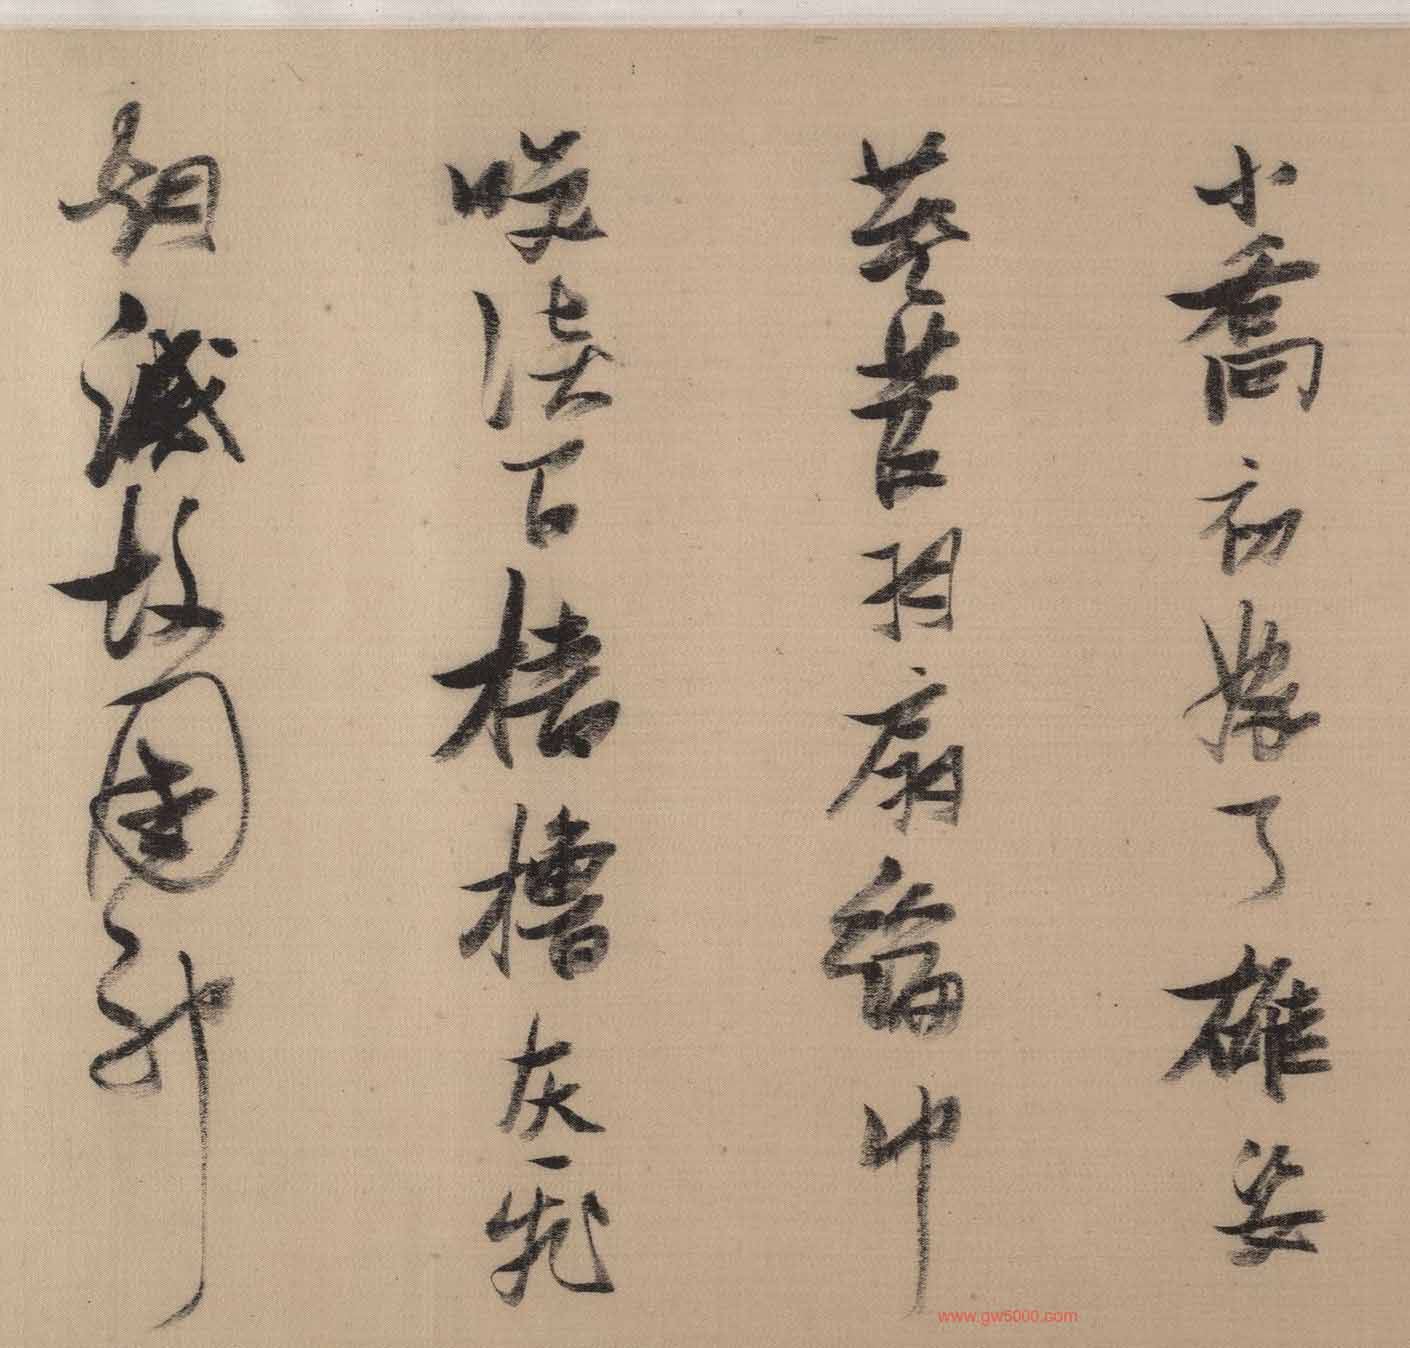 小喬初嫁了雄姿
英發羽扇綸巾
咲談間檣櫓灰飛
烟滅故國神
www.gw5000.com